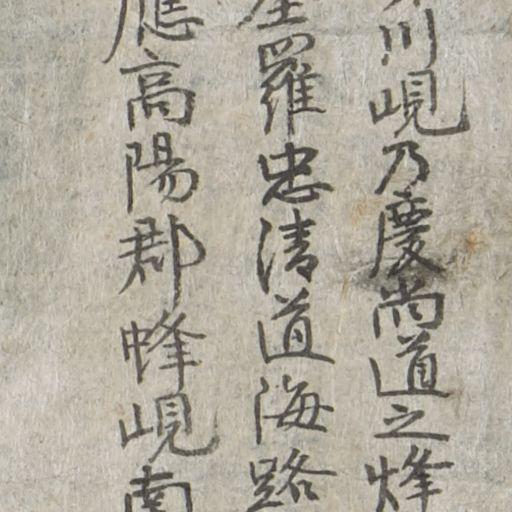 川峴乃慶尚道之烽
羅忠清道海路
應高陽郡蜂峴南